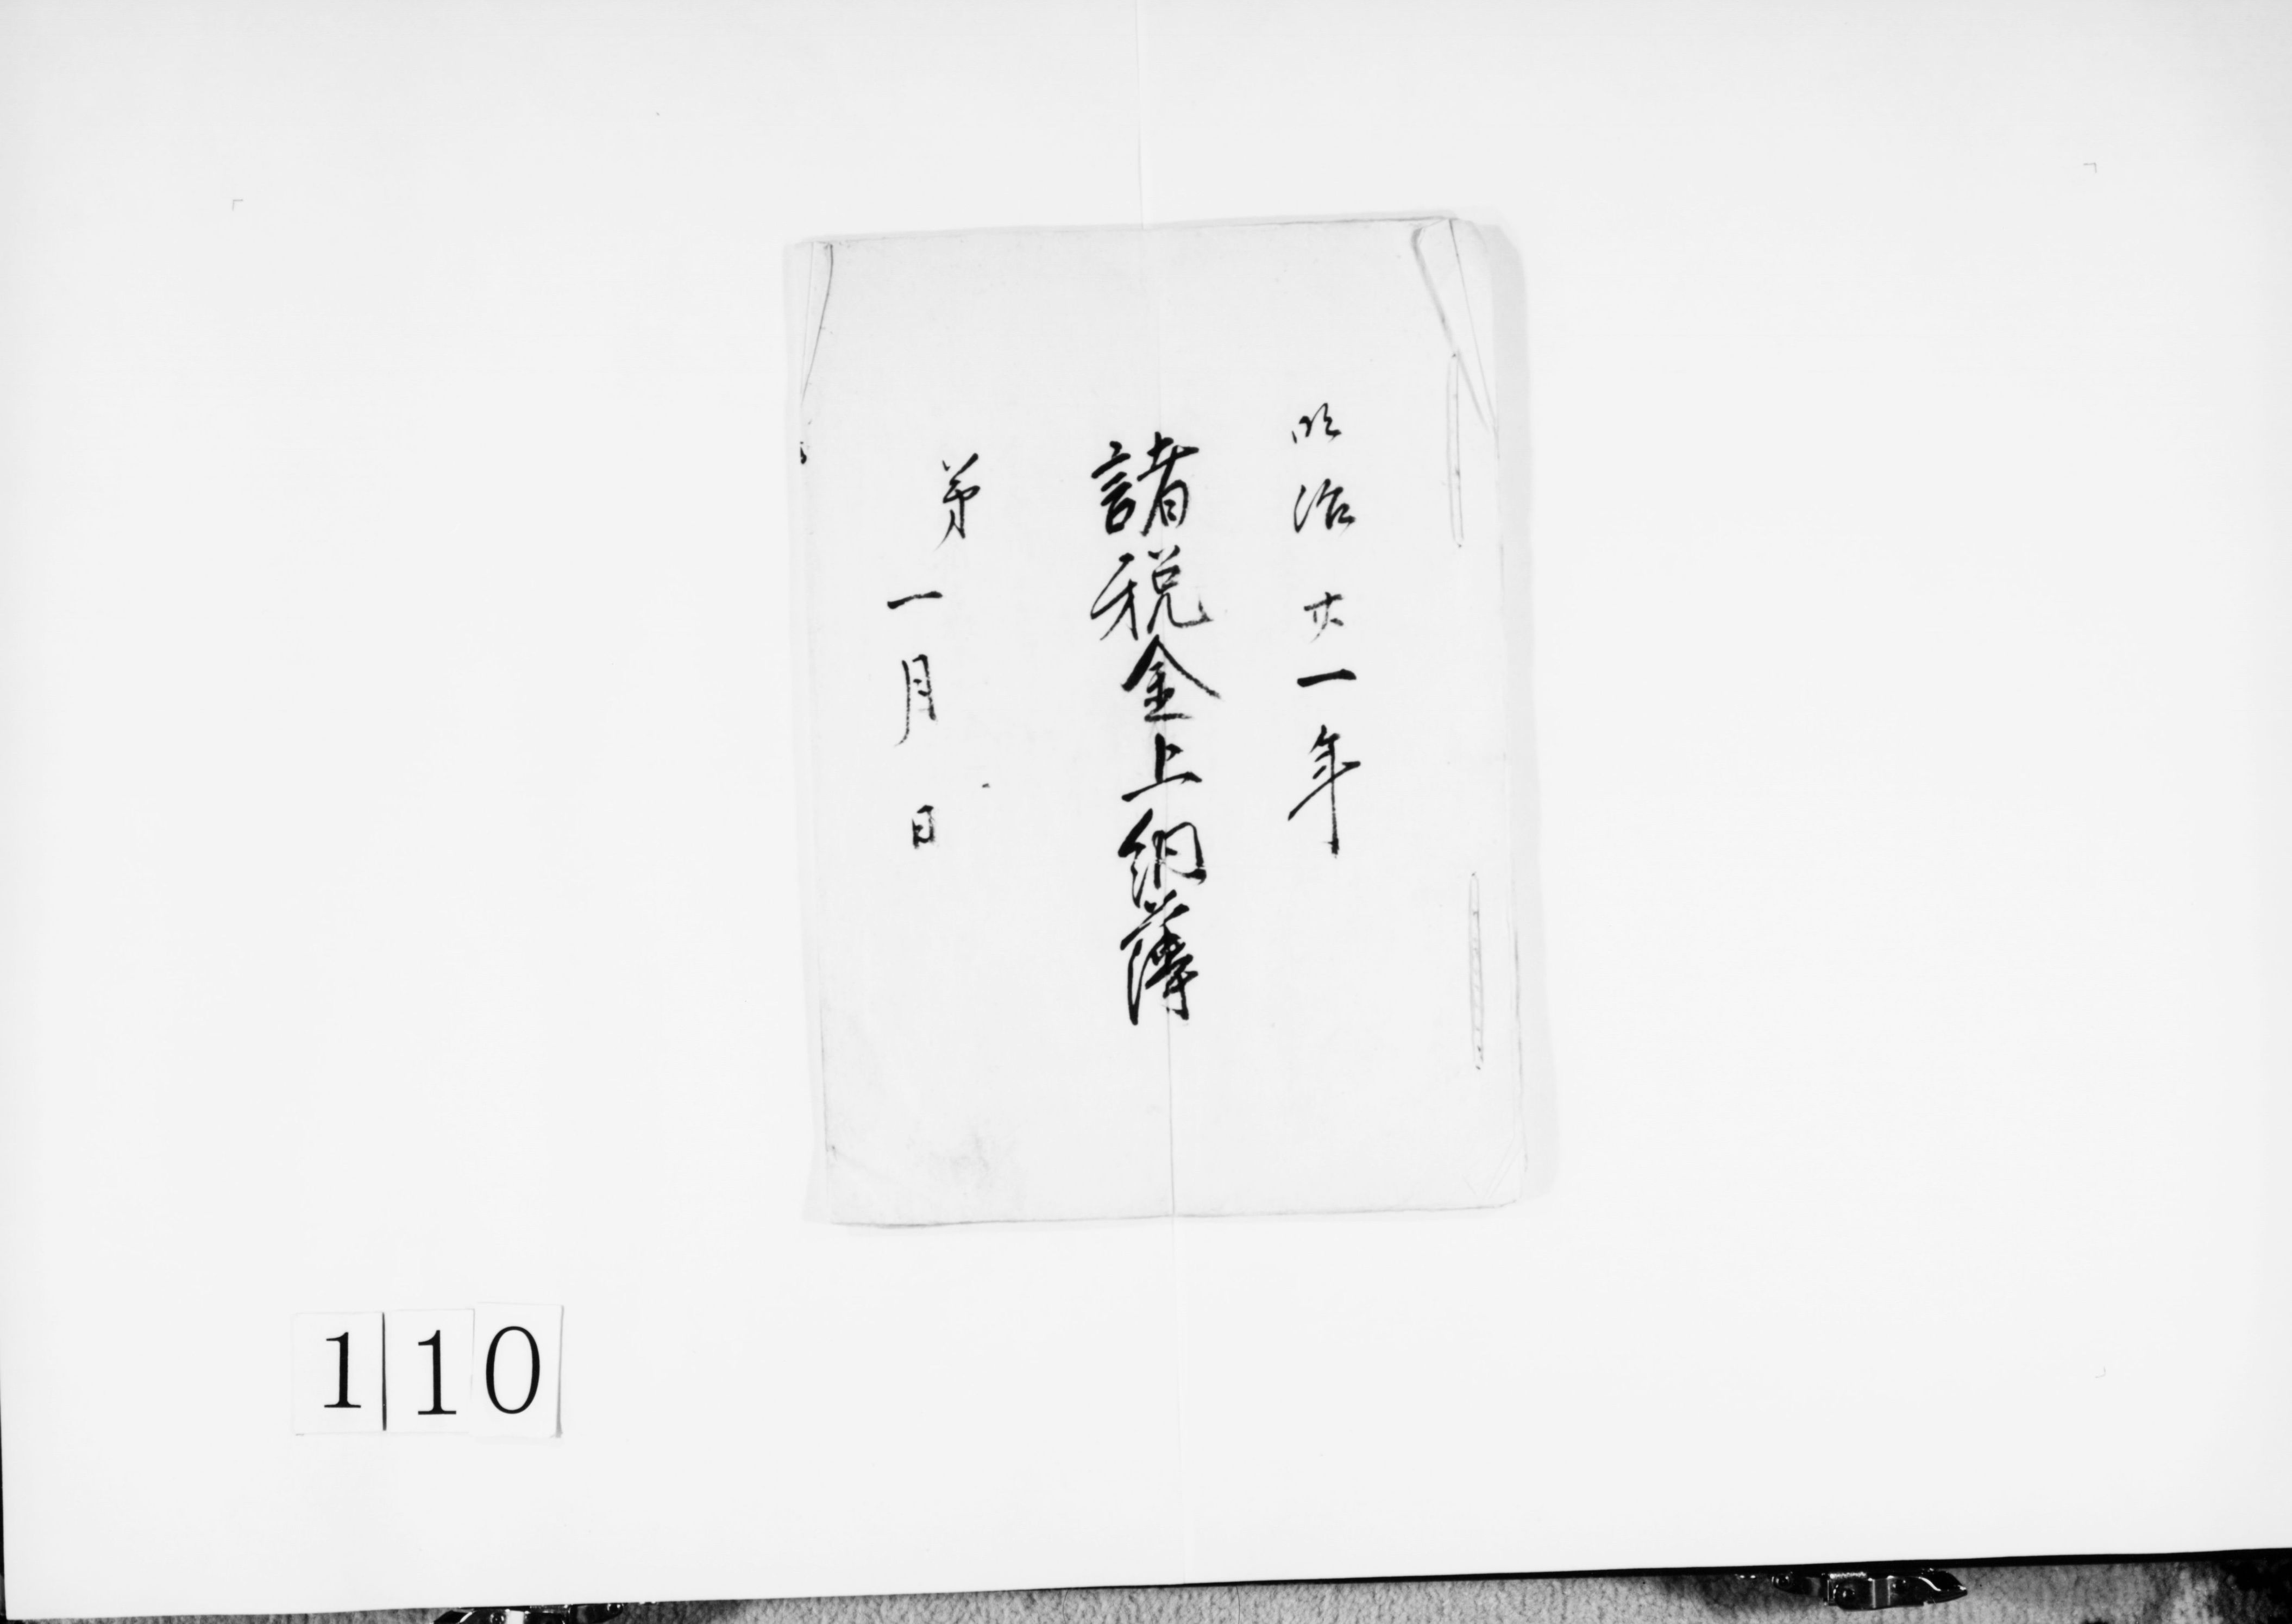 明治卅一年
諸税金上納簿
第
一月 日
110